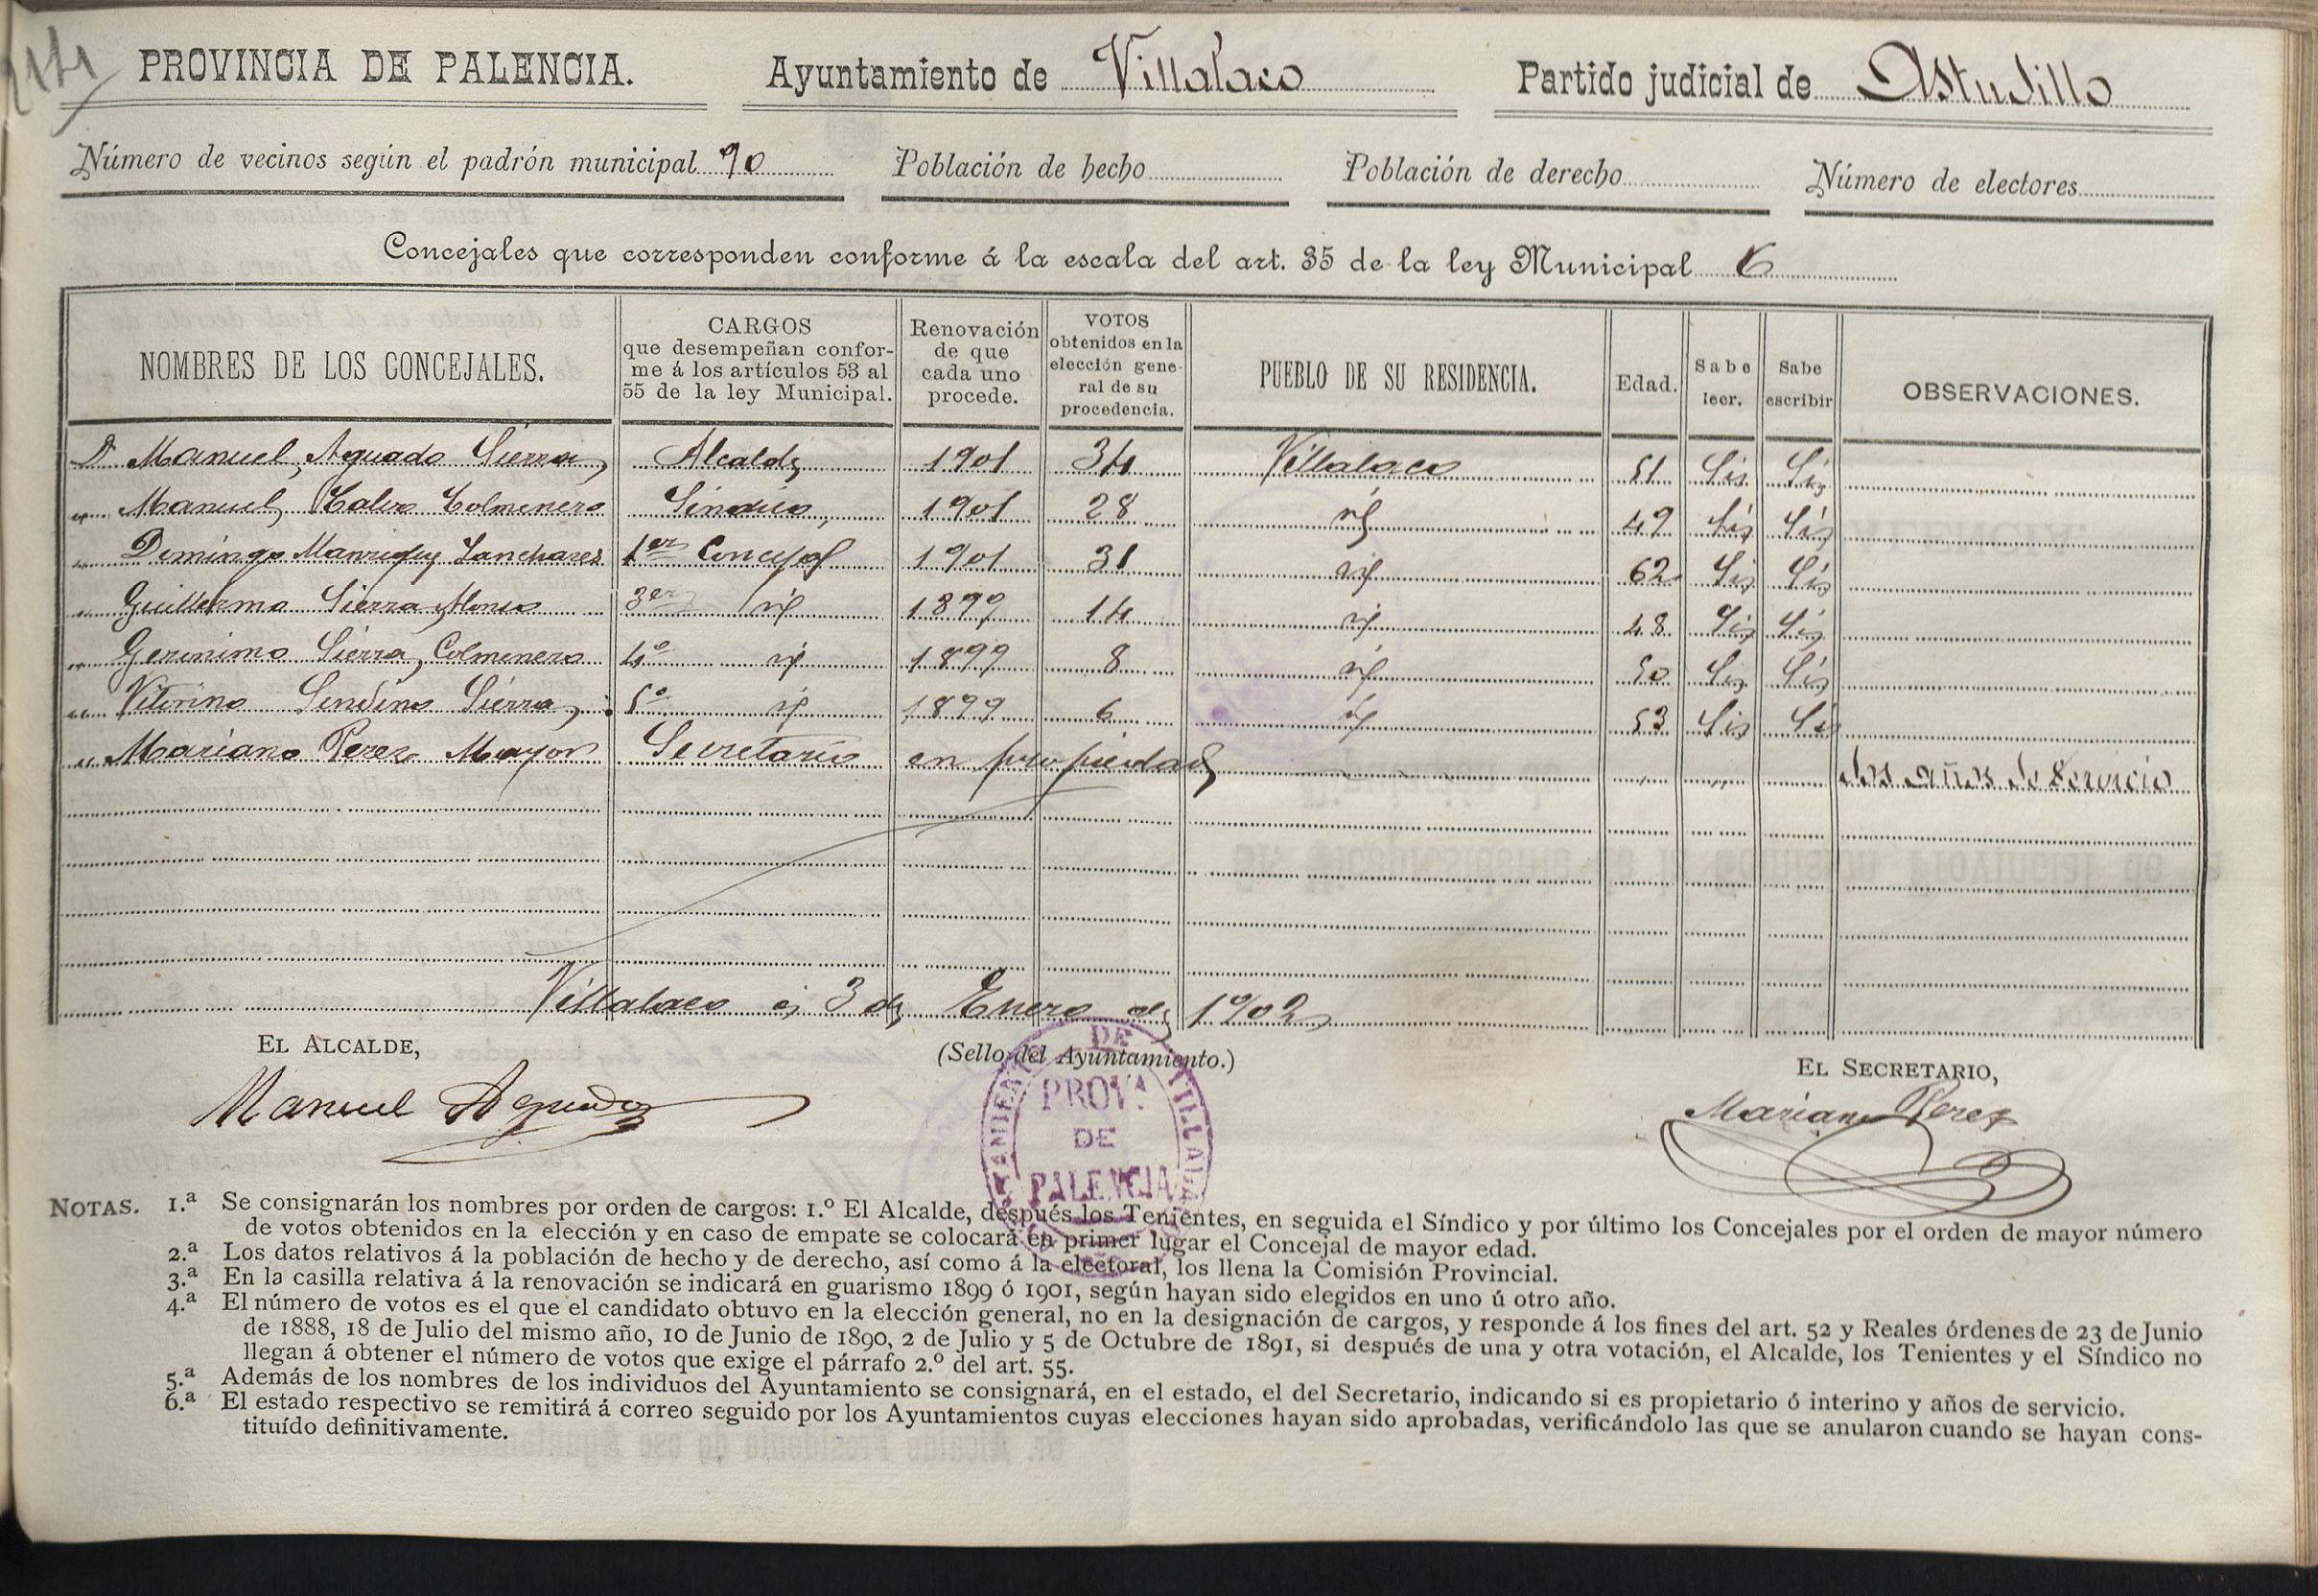 214
PROVINCIA DE PALENCIA. Ayuntamiento de Villalaco Partido judicial de Astudillo
Número de vecinos según el padrón municipal 90 Población de hecho Población de derecho Número de electores
Concejales que corresponden conforme á la escala del art. 35 de la ley Municipal 6
NOMBRES DE LOS CONCEJALES. CARGOS que desempeñan confor-me á los artículos 53 al 55 de la ley Municipal. Renovación de que cada uno procede. VOTOS obtenidos en la elección gene-ral de su procedencia. PUEBLO DE SU RESIDENCIA. Edad. Sabe leer. Sabe escribir OBSERVACIONES.
Dn Manuel Aguado Sierra Alcalde 1901 34 Villalaco 51 Si Si
" Manuel Calvo Colmenero Sindico 1901 28 id 49 Si Si
" Domingo Manrique Tanchares 1er Concejal 1901 31 id 62 Si Si
" Guillermo Sierra Alonso 3er id 1899 14 id 48 Si Si
" Geronimo Sierra Colmenero 4º id 1899 8 id 50 Si Si
" Vitirino Sendino Sierra 5º id 1899 6 id 53 Si Si
" Mariano Perez Mayor Secretario en propiedad " " dos años de servicio
Villalaco á 3 de Enero de 1902
EL ALCALDE, (Sello del Ayuntamiento.) EL SECRETARIO,
Manuel Aguado Mariano Perez
DE VILLALA
PROVA
DE
PALENCIA
NOTAS. 1.ª Se consignarán los nombres por orden de cargos: 1.º El Alcalde, después los Tenientes, en seguida el Síndico y por último los Concejales por el orden de mayor número
de votos obtenidos en la elección y en caso de empate se colocará en primer lugar el Concejal de mayor edad.
2.ª Los datos relativos á la población de hecho y de derecho, así como á la electoral, los llena la Comisión Provincial.
3.ª En la casilla relativa á la renovación se indicará en guarismo 1899 ó 1901, según hayan sido elegidos en uno ú otro año.
4.ª El número de votos es el que el candidato obtuvo en la elección general, no en la designación de cargos, y responde á los fines del art. 52 y Reales órdenes de 23 de Junio
de 1888, 18 de Julio del mismo año, 10 de Junio de 1890, 2 de Julio y 5 de Octubre de 1891, si después de una y otra votación, el Alcalde, los Tenientes y el Síndico no
llegan á obtener el número de votos que exige el párrafo 2.º del art. 55.
5.ª Además de los nombres de los individuos del Ayuntamiento se consignará, en el estado, el del Secretario, indicando si es propietario ó interino y años de servicio.
6.ª El estado respectivo se remitirá á correo seguido por los Ayuntamientos cuyas elecciones hayan sido aprobadas, verificándolo las que se anularon cuando se hayan cons-
tituído definitivamente.